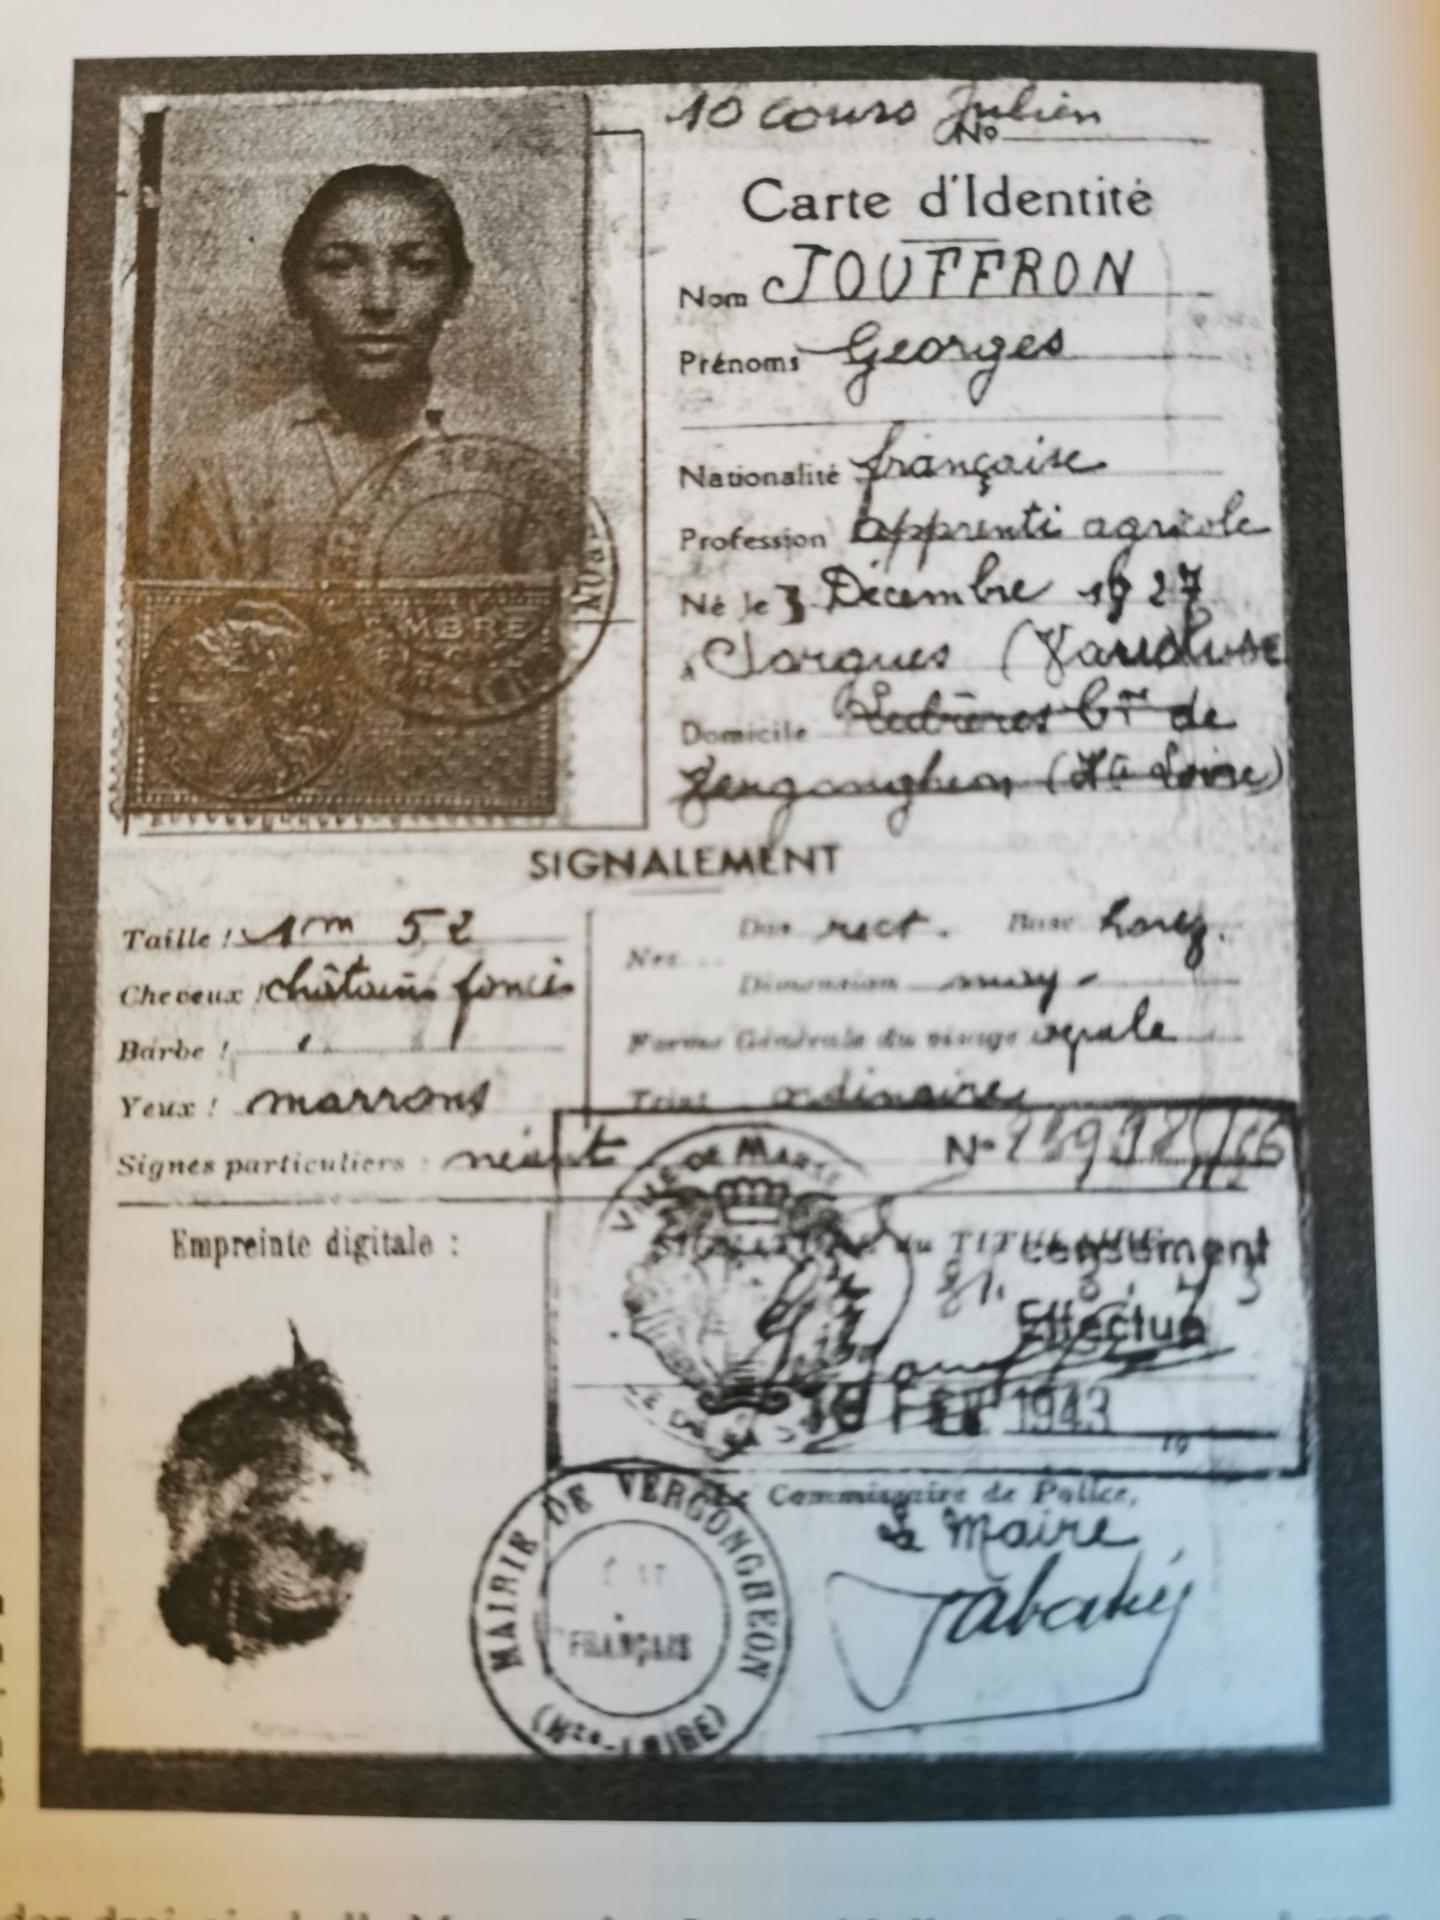 10 cours Julien
No
Carte d'Identité
Nom JOUFFRON
Prénoms Georges
Nationalité française
Profession apprenti agricole
Né le 3 Décembre 1927
à Sorgues (Vaucluse
Domicile Cne de
(Hte Loire)
TIMBRE
SIGNALEMENT
Taille : 1m 52
Cheveux : châtains foncés
Barbe :
Yeux : marrons
Signes particuliers : néant
Nez... Dos rect. Base horiz.
Dimension moy.
Forme Générale du visage ovale
Teint ordinaire
VILLE DE MARSE
No
Signature du TITULAIRE
censement
Effectué
18 FEV 1943
Empreinte digitale :
Le Commissaire de Police,
Le Maire
MAIRIE DE VERGONGHEON
ÉTAT
FRANÇAIS
(Hte-LOIRE)